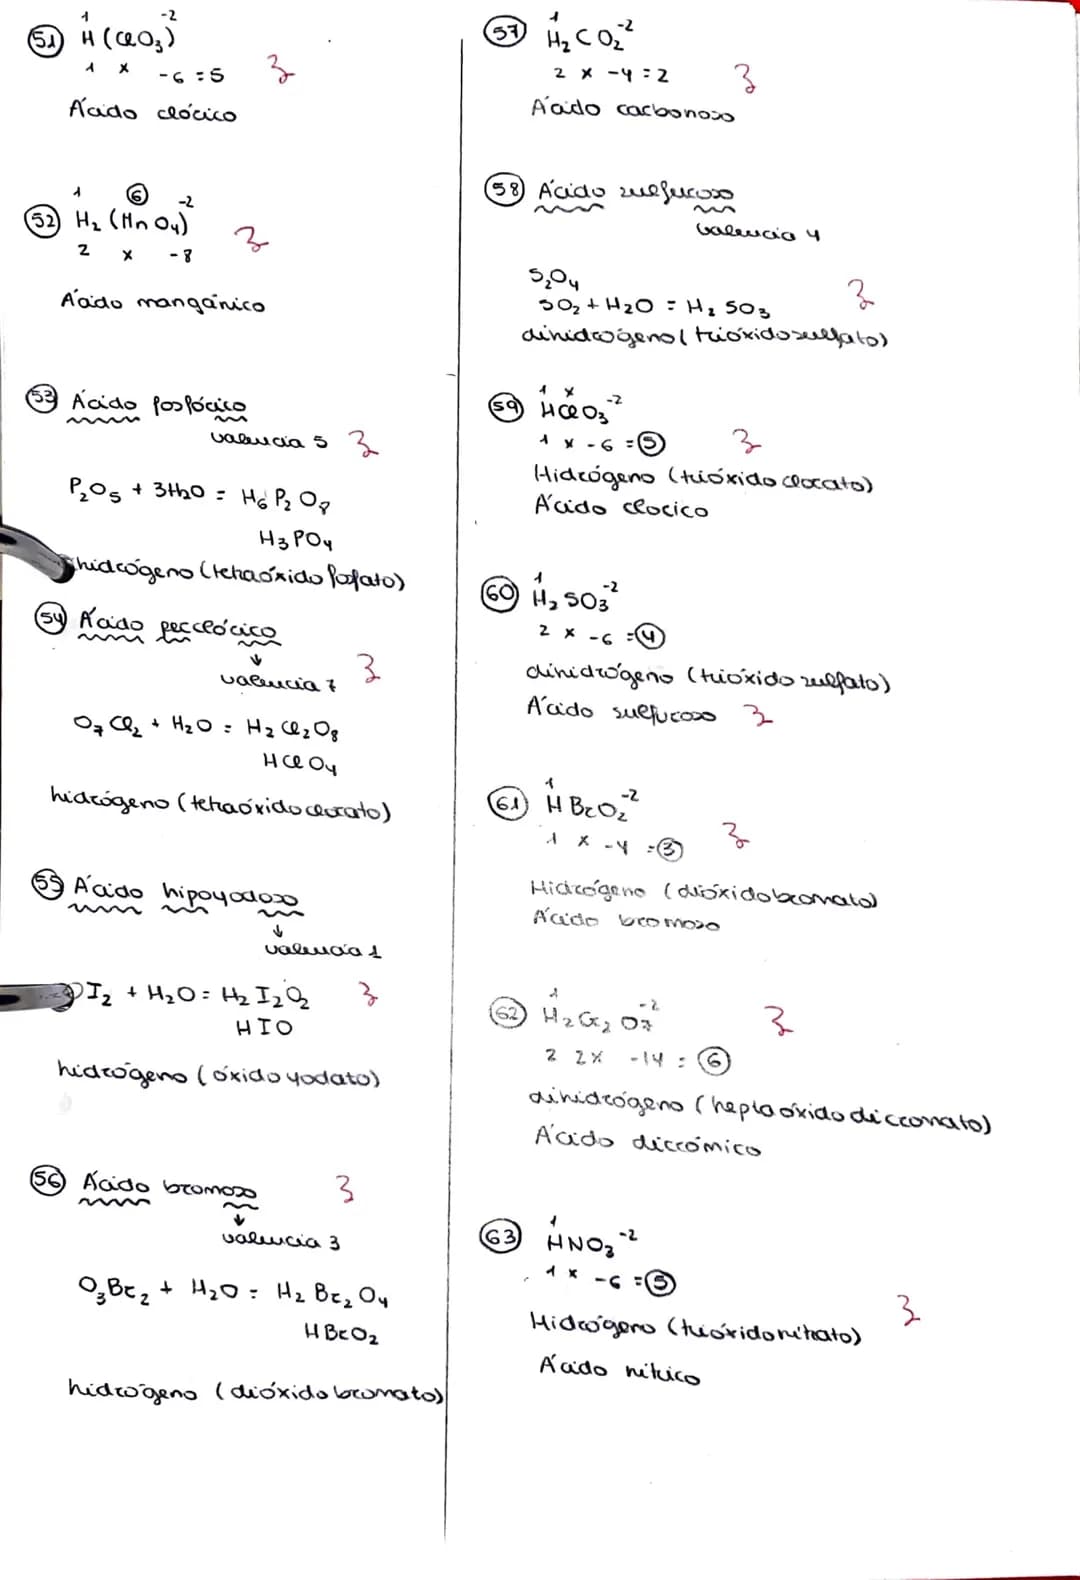 51 H (ClO3)
1 -2
1 x -6 = 5 3
Ácido clórico
52 H2 (MnO4)
1 6 -2
2 x -8 3
Ácido mangánico
53 Ácido fosfórico
valencia 5 3
P2O5 + 3H2O = H6 P2 O8
H3PO4
3hidrógeno (tetraóxido fosfato)
54 Ácido perclórico
valencia 7 3
O7Cl2 + H2O = H2 Cl2O8
HClO4
hidrógeno (tetraóxidoclorato)
55 Ácido hipoyodoso
valencia 1
OI2 + H2O = H2 I2O2 3
HIO
hidrógeno (óxido yodato)
56 Ácido bromoso 3
valencia 3
O3Br2 + H2O = H2 Br2 O4
HBrO2
hidrógeno (dióxidobromato)
57 H2 CO2
1 -2
2 x -4 = 2 3
Ácido carbonoso
58 Ácido sulfuroso
valencia 4
S2O4
SO2 + H2O = H2 SO3 3
dihidrógeno (trióxidosulfato)
59 HClO3
1 x -2
1 x -6 = 5 3
Hidrógeno (trióxido clorato)
Ácido clorico
60 H2 SO3
1 -2
2 x -6 = 4
dihidrógeno (trióxido sulfato)
Ácido sulfuroso 3
61 H BrO2
1 -2
1 x -4 = 3 3
Hidrógeno (dióxidobromato)
Ácido bromoso
62 H2Cr2 O7
1 -2
2 2x -14 = 6 3
dihidrógeno (heptaóxido dicromato)
Ácido dicrómico
63 HNO3
1 -2
1 x -6 = 5 3
Hidrógeno (trióxidonitrato)
Ácido nítrico